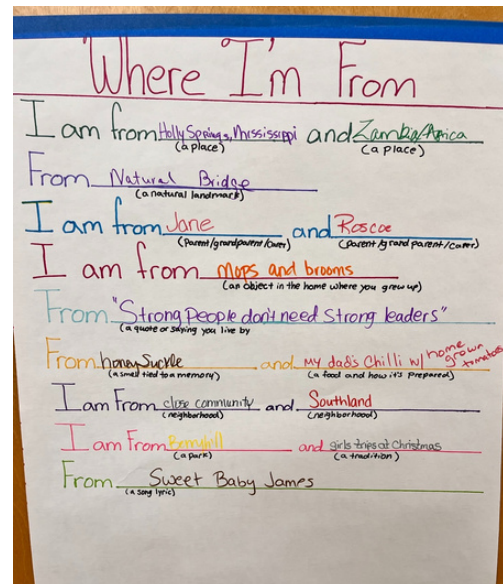 Where I'm From
I am from Holly Springs, Mississippi and Zambia/Africa
(a place) (a place)
From Natural Bridge
(a natural landmark)
I am from Jane and Roscoe
(parent/grandparent/carer) (parent/grand parent/carer)
I am from Mops and brooms
(an object in the home where you grew up)
From "Strong People don't need Strong leaders"
(a quote or saying you live by
From honeysuckle and My dad's Chilli w/ home grown tomatoes
(a smell tied to a memory) (a food and how it's prepared)
I am From close community and Southland
(neighborhood) (neighborhood)
I am From Berryhill and girls trips at Christmas
(a park) (a tradition)
From Sweet Baby James
(a song lyric)